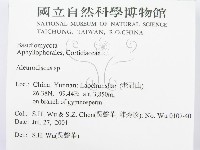 國立自然科學博物館
NATIONAL MUSEUM OF NATURAL SCIENCE
TAICHUNG, TAIWAN, R.O.CHINA
Basidiomycota
Aphyllophorales, Corticiaceae
Aleurodiscus sp.
Loc : China Yunnan:
26.38N, 99.44E alt. 3,850m
on branch of gymnosperm
Col : S.H. Wu & S.Z. Chen No. Wu 0107-40
Date : Jul. 27, 2001
Det : S.H. Wu